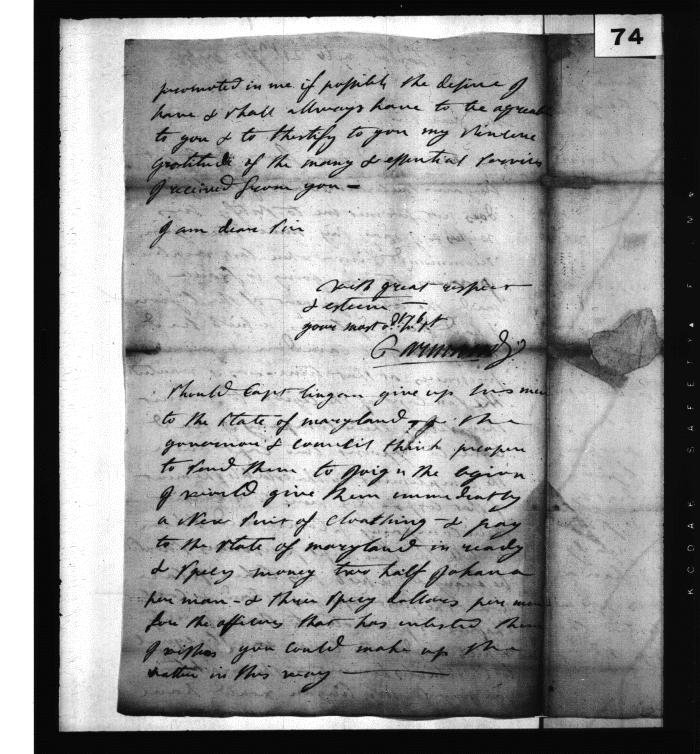 74
promoted in me if possible the desire I
have & shall allways have to be agreable
to you & to thestify to you my sincere
gratitude of the many & essential services
I received from you —
I am dear Sir
with great respect
& esteem —
your most
Armand
Should Capt lingan give up his men
to the State of maryland & if the
governor & council think proper
to send them to join the legion
I would give them immediatly
a New suit of Cloathing & pay
to the State of maryland in ready
& specy money two half Johana
per man - & three specy dollars per man
for the officers that has inlisted them
I wishes you could make up the
matter in this way
KODAK SAFETY FILM